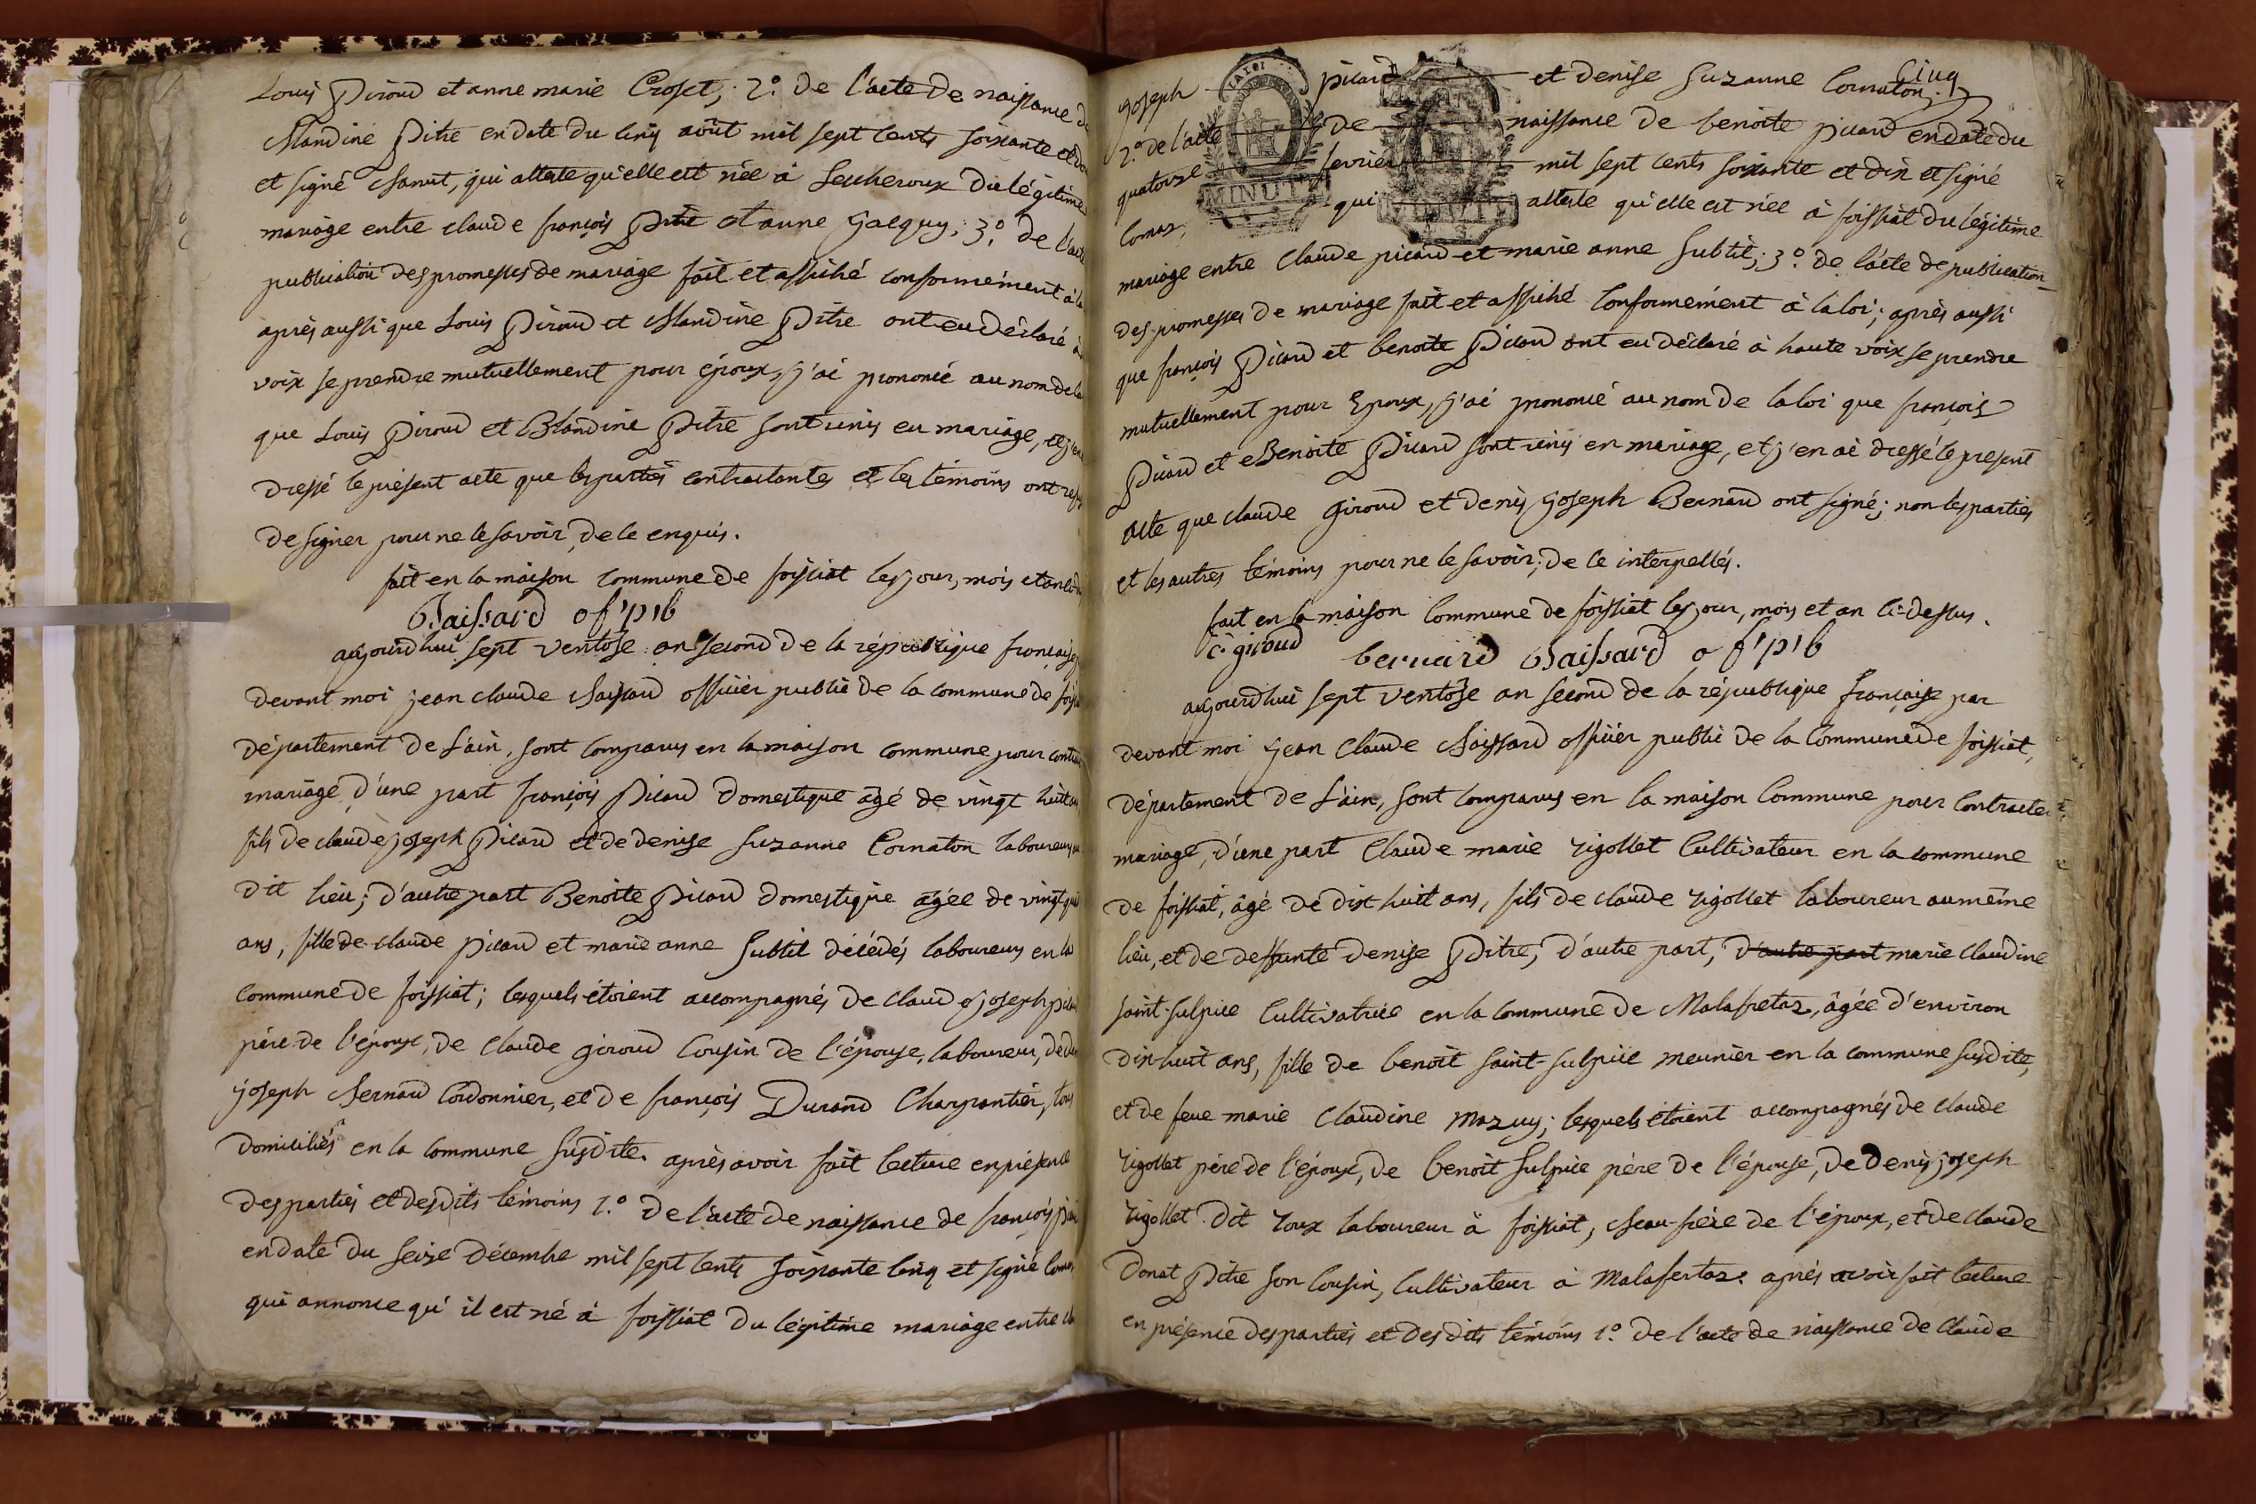 Louis Piroud et anne marie Croset; 2.° de l'acte de naissance de
Blandine Pitre en date du cinq août mil sept cents soixante et
et signé Mamet, qui atteste qu'elle est née à Lescheroux du légitime
mariage entre claude françois Pitre et anne Jacquy; 3.° de l'acte
publication des promesses de mariage fait et affiché conformément à la
après aussi que Louis Piroud et Blandine Pitre ont eu déclaré à
voix se prendre mutuellement pour époux, j'ai prononcé au nom de la
que Louis Piroud et Blandine Pitre sont unis en mariage, et j'en
dressé le présent acte que les parties contractantes et les témoins ont
de signer pour ne le savoir, de ce enquis.
fait en la maison commune de foissiat les jour, mois et an
Baissard of' p'b
aujourd'hui sept ventôse an second de la république française
devant moi jean claude Baissard officier public de la commune de
département de L'ain, sont comparus en la maison commune pour
mariage d'une part françois Picard domestique âgé de vingt huit
fils de claude joseph Picard et de denise suzanne Cornaton laboureurs
dit lieu; d'autre part Benoite Picard domestique âgée de vingt
ans, fille de claude picard et marie anne subtil décédés laboureurs en la
commune de foissiat; lesquels étoient accompagnés de claude joseph
père de l'époux, de claude giroud cousin de l'épouse, laboureur,
joseph Bernard Cordonnier, et de françois Durand Charpentier, tous
domiciliés en la commune susdite. après avoir fait lecture en présence
des parties et des dits témoins 1.° de l'acte de naissance de françois
en date du seize décembre mil sept cents soixante cinq et signé
qui annonce qu'il est né à foissiat du légitime mariage entre
Cinq
joseph picard et denise suzanne Cornaton;
2.° de l'acte de naissance de benoite picard en date du
quatorze fevrier mil sept cents soixante et dix et signé
Comas, qui atteste qu'elle est née à foissiat du légitime
MINUTE
mariage entre claude picard et marie anne subtil; 3.° de l'acte de publication
des promesses de mariage fait et affiché conformément à la loi; après aussi
que françois Picard et benoite Picard ont eu déclaré à haute voix se prendre
mutuellement pour Epoux, j'ai prononcé au nom de la loi que françois
Picard et Benoite Picard sont unis en mariage, et j'en ai dressé le présent
acte que claude giroud et denis joseph Bernard ont signé; non les parties
et les autres témoins pour ne le savoir; de ce interpellés.
fait en la maison commune de foissiat les jour, mois et an ci-dessus.
C. giroud bernard Baissard of' p'b
aujourd'hui sept ventôse an second de la république française par
devant moi jean claude Baissard officier public de la commune de foissiat,
département de L'ain, sont comparus en la maison commune pour contracter
mariage, d'une part claude marie rigollet cultivateur en la commune
de foissiat, âgé de dix huit ans, fils de claude rigollet laboureur au même
lieu, et de deffunte denise Pitre, d'autre part, d'autre part marie claudine
saint-sulpice cultivatrice en la commune de Malafretaz, âgée d'environ
dix-huit ans, fille de benoit saint-sulpice meunier en la commune susdite,
et de feue marie claudine Mazuy; lesquels étoient accompagnés de claude
rigollet père de l'époux, de benoit sulpice père de l'épouse, de denis joseph
rigollet dit roux laboureur à foissiat, beau-frère de l'époux, et de claude
Donat Pitre son cousin, cultivateur à Malafertaz. après avoir fait lecture
en présence des parties et des dits témoins 1.° de l'acte de naissance de claude